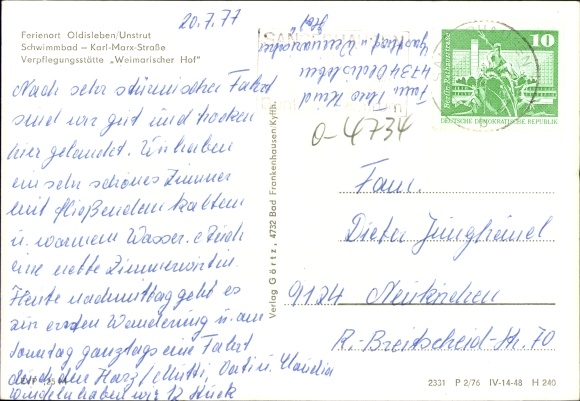 20.7.77
Ferienort Oldisleben/Unstrut
Schwimmbad – Karl-Marx-Straße
Verpflegungsstätte „Weimarischer Hof"
Nach sehr stürmischer Fahrt
sind wir gut und trocken
hier gelandet. Wir haben
ein sehr schönes Zimmer
mit fließendem kaltem
u. warmem Wasser. Auch
eine nette Zimmerwirtin
Heute nachmittag geht es
zur ersten Wanderung u. am
Sonntag ganztags eine Fahrt
durch den Harz/Mutti, Vati u. Claudia
Windeln haben wir 12 Stück
Verlag Görtz, 4732 Bad Frankenhausen/Kyffh.
4734 Oldisleben
Gasthof „Weimarischer
Hof"
0-4734
10
DEUTSCHE DEMOKRATISCHE REPUBLIK
Fam.
Dieter Junghänel
9124 Neukirchen
R.-Breitscheid-Str. 70
2331 P 2/76 IV-14-48 H 240